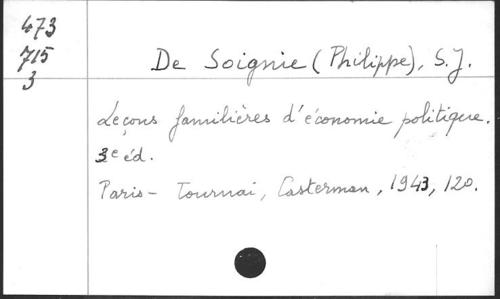 473
715
3
De Soignie (Philippe), S.J.
Leçons familières d'économie politique.
3e éd.
Paris - Tournai, Casterman, 1943, 12o.